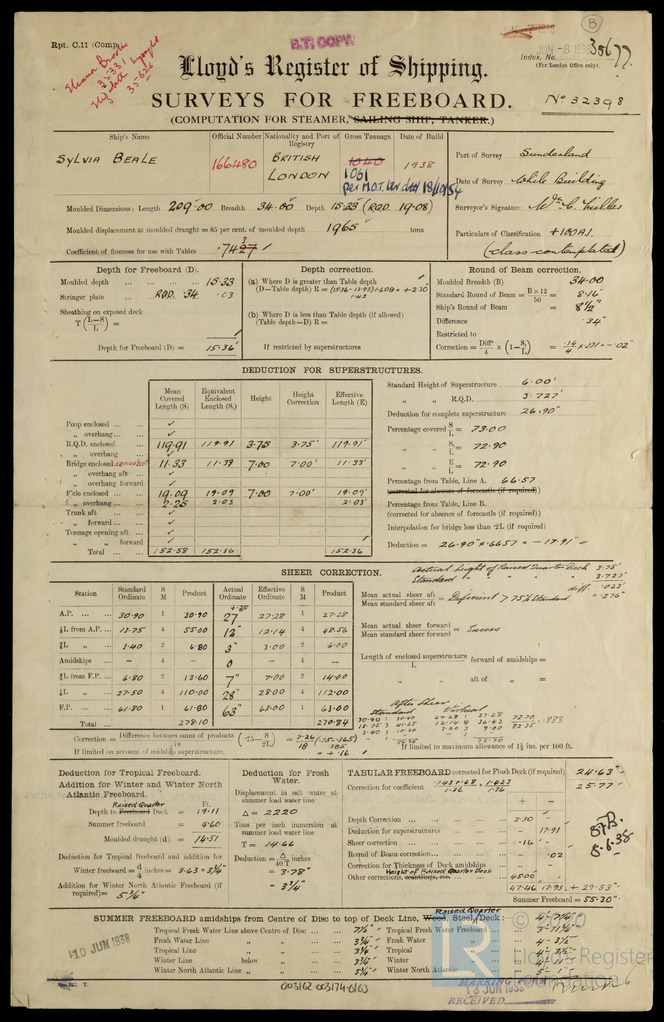 Rpt. C.11 (Comp)
B.T. COPY
JUN -8 1938
B
35677
Index. No.
(For London Office only).
Eleanor Brooke
35331
35626
Lloyd's Register of Shipping.
SURVEYS FOR FREEBOARD.
No 32398
(COMPUTATION FOR STEAMER, SAILING SHIP, TANKER.)
Ship's Name Official Number Nationality and Port of Registry Gross Tonnage Date of Build
SYLVIA BEALE 166480 BRITISH LONDON 1040 1061 1938
per M.O.T. 18/10/54
Port of Survey Sunderland
Date of Survey While Building
Surveyor's Signature
Particulars of Classification +100A1.
(class contemplated)
Moulded Dimensions: Length 209.00 Breadth 34.00 Depth 15.33 (RQD. 19.08)
Moulded displacement at moulded draught = 85 per cent. of moulded depth 1965 tons
Coefficient of fineness for use with Tables
Depth for Freeboard (D).
Moulded depth 15.33
Stringer plate RQD. .34 .03
Sheathing on exposed deck
T (L-S/L) =
Depth for Freeboard (D) = 15.36'
Depth correction.
(a) Where D is greater than Table depth
(D—Table depth) R = (15.36-13.93) 1.608 = +2.30
1.43
(b) Where D is less than Table depth (if allowed)
(Table depth—D) R =
If restricted by superstructures
Round of Beam correction.
Moulded Breadth (B) 34.00
Standard Round of Beam = B × 12 / 50 = 8.16"
Ship's Round of Beam = 8½"
Difference .34"
Restricted to
Correction = Diffce/4 × (1 - S₁/L) = .34/4 × .271 = -.02"
DEDUCTION FOR SUPERSTRUCTURES.
Mean Covered Length (S) Equivalent Enclosed Length (S₁) Height Height Correction Effective Length (E)
Poop enclosed
„ overhang
R.Q.D. enclosed 119.91 119.91 3.75 3.75' 119.91'
„ overhang
Bridge enclosed 11.33 11.39 7.00 7.00' 11.33'
„ overhang aft
„ overhang forward
F'cle enclosed 19.09 19.09 7.00 7.00' 19.09'
„ overhang 2.25 2.03 2.03'
Trunk aft
„ forward
Tonnage opening aft
„ „ forward
Total 152.58 152.36 152.36
Standard Height of Superstructure 6.00'
„ „ R.Q.D. 3.727'
Deduction for complete superstructure 26.90"
Percentage covered S/L = 73.00
„ S₁/L = 72.90
„ E/L = 72.90
Percentage from Table, Line A. 66.57
(corrected for absence of forecastle (if required))
Percentage from Table, Line B.
(corrected for absence of forecastle (if required))
Interpolation for bridge less than ·2L (if required)
Deduction = 26.90" × .6657 = -17.91"
SHEER CORRECTION.
Actual height of Raised Quarter Deck 3.75'
Standard „ „ „ „ 3.727'
diff. .023'
= .276"
Station Standard Ordinate S M Product Actual Ordinate Effective Ordinate S M Product
A.P. 30.90 1 30.90 27" 27.28 1 27.28
⅙L from A.P. 13.75 4 55.00 12" 12.14 4 48.56
⅓L „ 3.40 2 6.80 3" 3.00 2 6.00
Amidships - 4 - 0 - 4 -
⅓L from F.P. 6.80 2 13.60 7" 7.00 2 14.00
⅙L „ 27.50 4 110.00 28" 28.00 4 112.00
F.P. 61.80 1 61.80 63" 63.00 1 63.00
Total 278.10 270.84
Mean actual sheer aft / Mean standard sheer aft = Deficient > 75% Standard
Mean actual sheer forward / Mean standard sheer forward = Excess
Length of enclosed superstructure / L forward of amidships =
„ aft of „ =
After Sheer
Standard Virtual
Correction = Difference between sums of products / 18 (·75 - S/2L) = 7.26/18 (.75-.365) .385
= +.16
If limited on account of midship superstructure.
If limited to maximum allowance of 1½ ins. per 100 ft.
Deduction for Tropical Freeboard.
Addition for Winter and Winter North Atlantic Freeboard.
Ft.
Depth to Raised Quarter Deck = 19.11
Summer freeboard = 4.60
Moulded draught (d) = 14.51
Deduction for Tropical freeboard and addition for
Winter freeboard = d/4 inches = 3.63 = 3¾"
Addition for Winter North Atlantic Freeboard (if required) = 5¾"
Deduction for Fresh Water.
Displacement in salt water at summer load water line
Δ = 2220
Tons per inch immersion at summer load water line
T = 14.66
Deduction = Δ / 40 T inches
= 3.78"
= 3¾"
TABULAR FREEBOARD corrected for Flush Deck (if required) 24.63"
Correction for coefficient 25.77
+ -
Depth Correction 2.30 -
Deduction for superstructures - 17.91
Sheer correction .16 -
Round of Beam correction - .02
Correction for Thickness of Deck amidships
Height of Raised Quarter Deck
Other corrections, scantlings, etc. 45.00
47.46 17.93 +29.53"
Summer Freeboard = 55.30"
8.6.38
SUMMER FREEBOARD amidships from Centre of Disc to top of Deck Line, Wood, Steel, Raised Quarter Deck: 4'-7¼"
Tropical Fresh Water Line above Centre of Disc 7½" Tropical Fresh Water Freeboard 3'-11¾"
Fresh Water Line „ „ 3¾" Fresh Water „ 4'-3½"
Tropical Line „ „ 3¾" Tropical „
Winter Line below „ 3¾" Winter „
Winter North Atlantic Line „ „ 5¾" Winter North Atlantic „
10 JUN 1938
003162-003174-0163
MARKING FORM
13 JUN 1938
RECEIVED
© 2020
LR
Lloyd's Register
Foundation